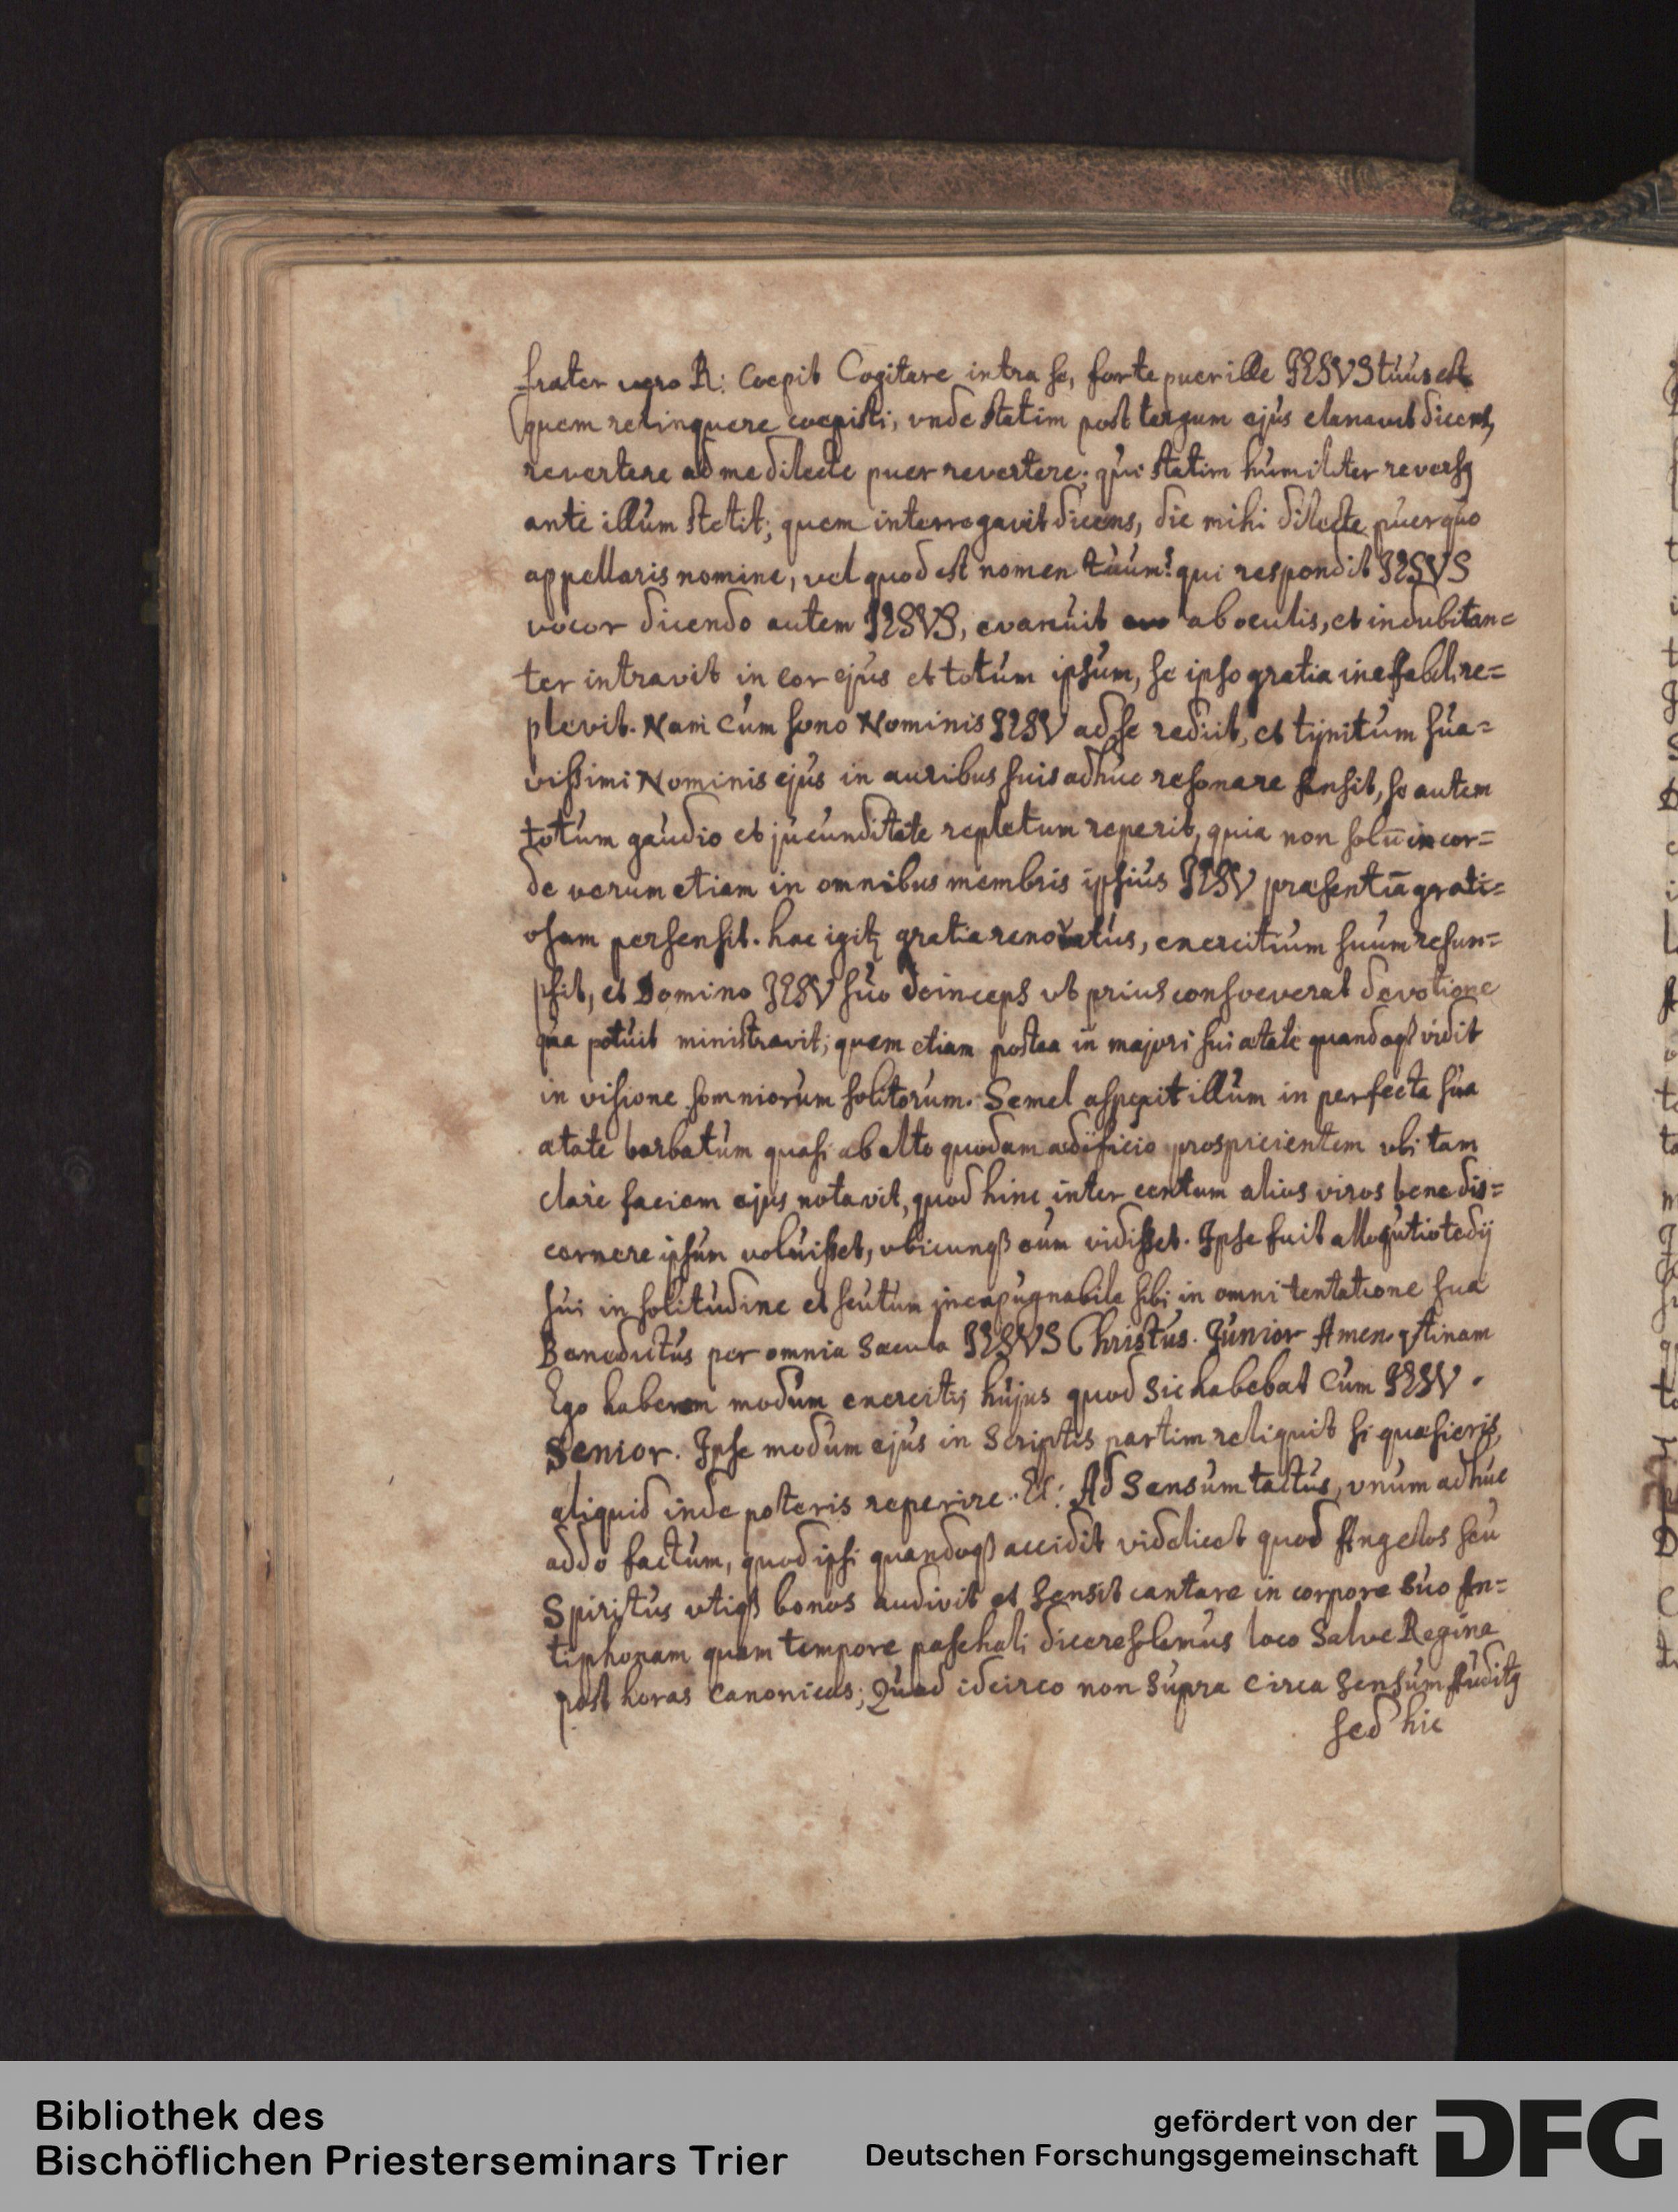 frater vero R: Coepit Cogitare intra se, forte puer ille JESVS tuus est
quem relinquere coepisti, vnde statim post tergum ejus clamavit dicens,
revertere ad me dilecte puer revertere; qui statim humiliter reversq
ante illum stetit; quem interrogavit dicens, dic mihi dilecte puer quo
appellaris nomine, vel quod est nomen tuum? qui respondit JESVS
vocor dicendo autem JESVS, evanuit ab oculis, et indubitan=
ter intravit in cor ejus et totum ipsum, se ipso gratia ineffabili re=
plevit. Nam cum sono Nominis JESV ad se rediit, et tijnitum sua=
vissimi Nominis ejus in auribus suis adhuc resonare sensit, se autem
totum gaudio et jucunditate repletum reperit, quia non solū in cor=
de verum etiam in omnibus membris ipsius JESV præsentiā grati=
osam persensit. hac igitꝫ gratia renovatus, exercitium suum resum=
psit, et Domino JESV suo deinceps vt prius consveverat devotione
qua potuit ministravit; quem etiam postea in majori sui ætate quandoqꝫ vidit
in visione somniorum solitorum. Semel aspexit illum in perfecta sua
ætate barbatum quasi ab alto quodam ædificio prospicientem vbi tam
clare faciem ejus notavit, quod hinc inter centum alios viros bene dis=
cernere ipsum voluisset, vbicunqꝫ eum vidisset. Ipse fuit allocutio tedij
sui in solitudine et scutum inexpugnabile sibi in omni tentatione sua
Benedictus per omnia Sæcula JESVS Christus. Junior Amen. vstinam
Ego haberem modum exercitij hujus quod sic habebat Cum JESV.
Senior. Ipse modum ejus in Scriptis partim reliquit si quæsieris,
aliquid inde poteris reperire. Et: Ad Sensum tactus, vnum adhuc
addo factum, quod ipsi quandoqꝫ accidit videlicet quod Angelos seu
Spiritus vtiqꝫ bonos audivit et Sensit cantare in corpore suo An=
tiphonam quam tempore paschali dicere solemus loco Salve Regina
post horas canonicas; Quod idcirco non Supra circa Sensum Auditq
sed hic
Bibliothek des
Bischöflichen Priesterseminars Trier
gefördert von der
Deutschen Forschungsgemeinschaft
DFG